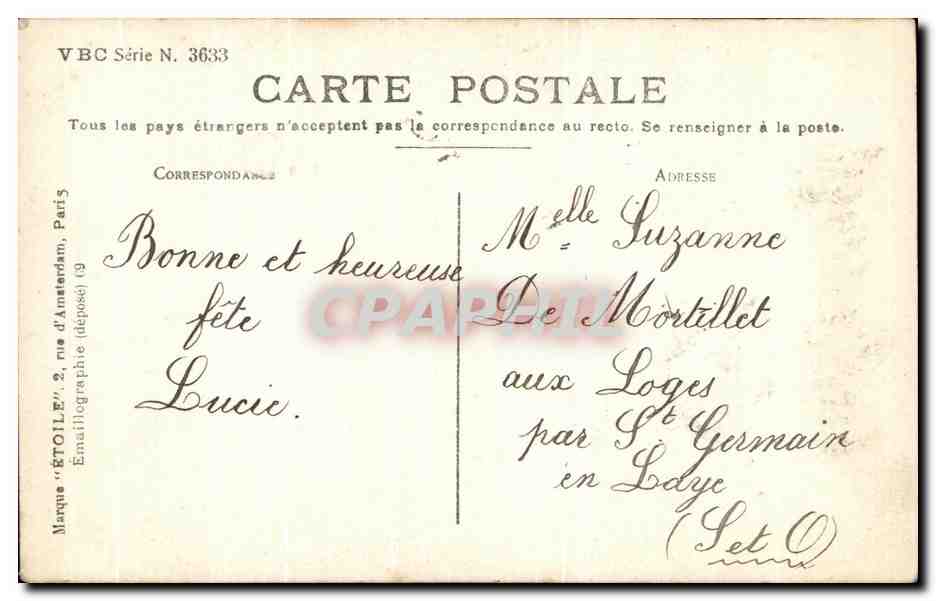 VBC Série N. 3633
CARTE POSTALE
Tous les pays étrangers n'acceptent pas la correspondance au recto. Se renseigner à la poste.
CORRESPONDANCE
ADRESSE
Marque "ÉTOILE", 2, rue d'Amsterdam, Paris
Émaillographie (déposé) 69
Bonne et heureuse
fête
Lucie.
Melle Suzanne
De Mortillet
aux Loges
par St Germain
en Laye
(S et O)
CPAPHIL